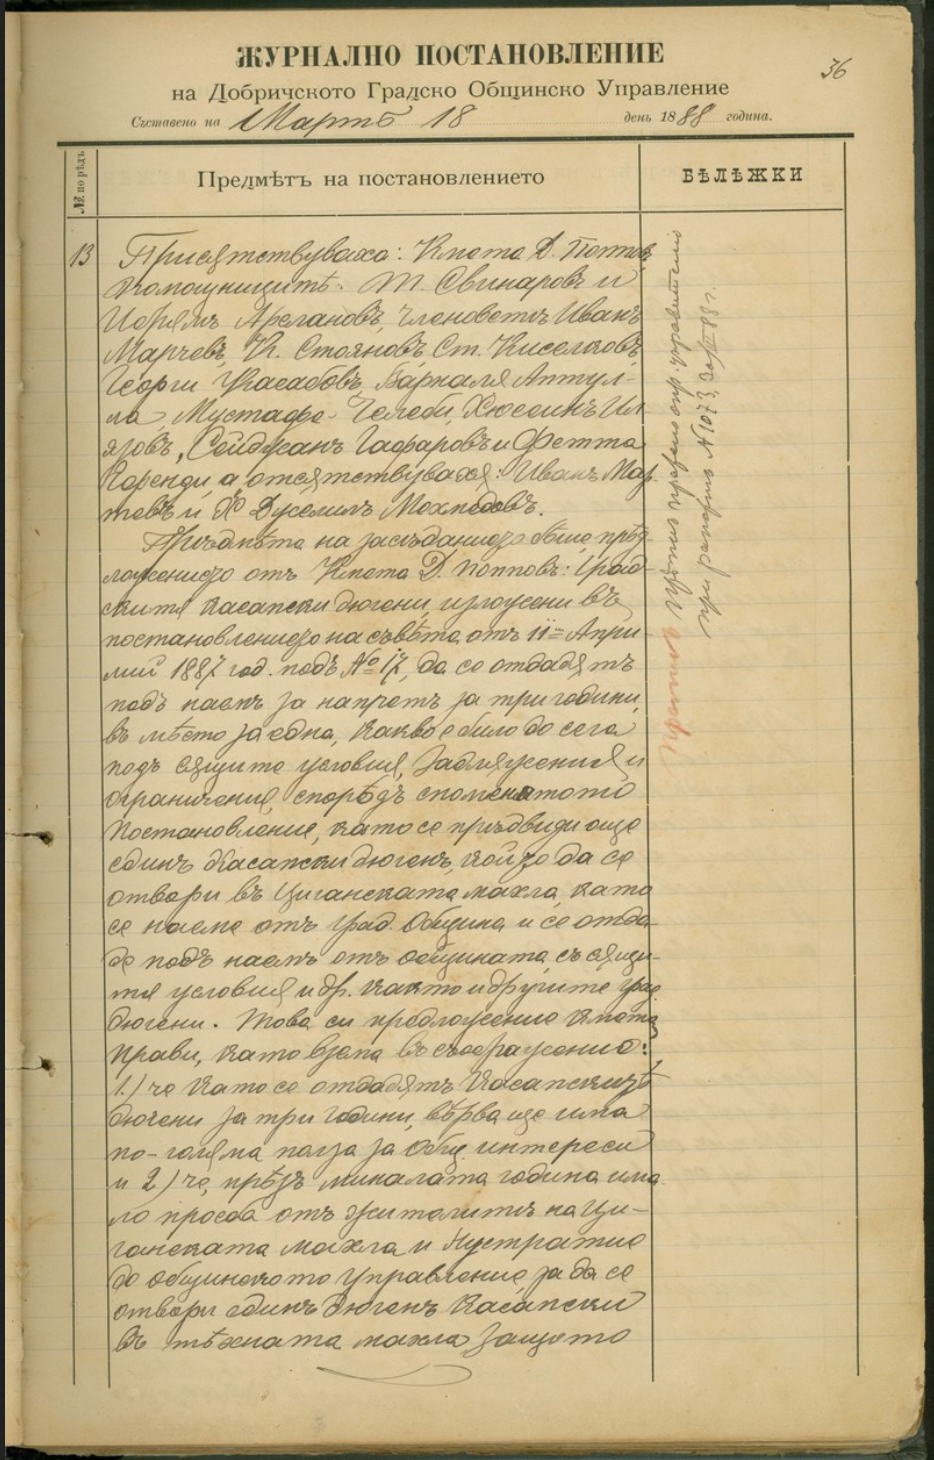 36
ЖУРНАЛНО ПОСТАНОВЛЕНИЕ
на Добричкото Градско Общинско Управление
Съставено на Мартъ 18 день 1888 година.
№ по рѣдъ
Предмѣтъ на постановлението
БѢЛѢЖКИ
13 Присѫтствуваха: Кмета Д. Поппов,
Помощницитѣ: Т. Свинаровъ и
Ибрямъ Арслановъ, членоветѣ Иванъ
Марчевъ, К. Стояновъ, Ст. Киселковъ,
Георги Касабовъ, Аптул-
ла, Мустафа Челеби, Хюсеинъ Ил
язовъ, Сейджанъ Гафаровъ и Фетта
Коренди, а отсѫтствувахѫ: Иванъ Мар
тевъ и Джелилъ Мохмедовъ.
Прѣдмѣта на засѣданието бѣше прѣд-
ложението отъ Кмета Д. Поппов: Град-
скитѣ касапски дюгени, изложени въ
постановлението на съвѣта отъ 11 Апри
лий 1887 год. подъ № 17, да се отдадѫтъ
подъ наемъ за напретъ за три години,
въ мѣсто за една, какво е било до сега
подъ сѫщите условия, задлъжения и
ограничения, спорѣдъ споменатото
постановление, като се прѣдвиди още
единъ касапски дюгенъ, който да се
отвори въ Циганската махла, като
се наеме отъ град. Община и се отда-
де подъ наемъ отъ общината, съ сѫщи-
тѣ условия и др. както и другите град.
дюгени. Това си предложение Кмета
прави, като взема въ съображение:
1.) че като се отдадѫтъ касапскитѣ
дюгени за три години, вѣрва ще има
по-голяма полза за общ. интереси
и 2) че, прѣзъ миналата година има
ло просба отъ жителитѣ на Ци-
ганската махла и
до общинското управление за да се
отвори единъ дюгенъ касапски
въ тѣхната махла, защото
Прѣписъ прѣпис. окр. управителю
при рапортъ № 1073, 20/III 88 г.